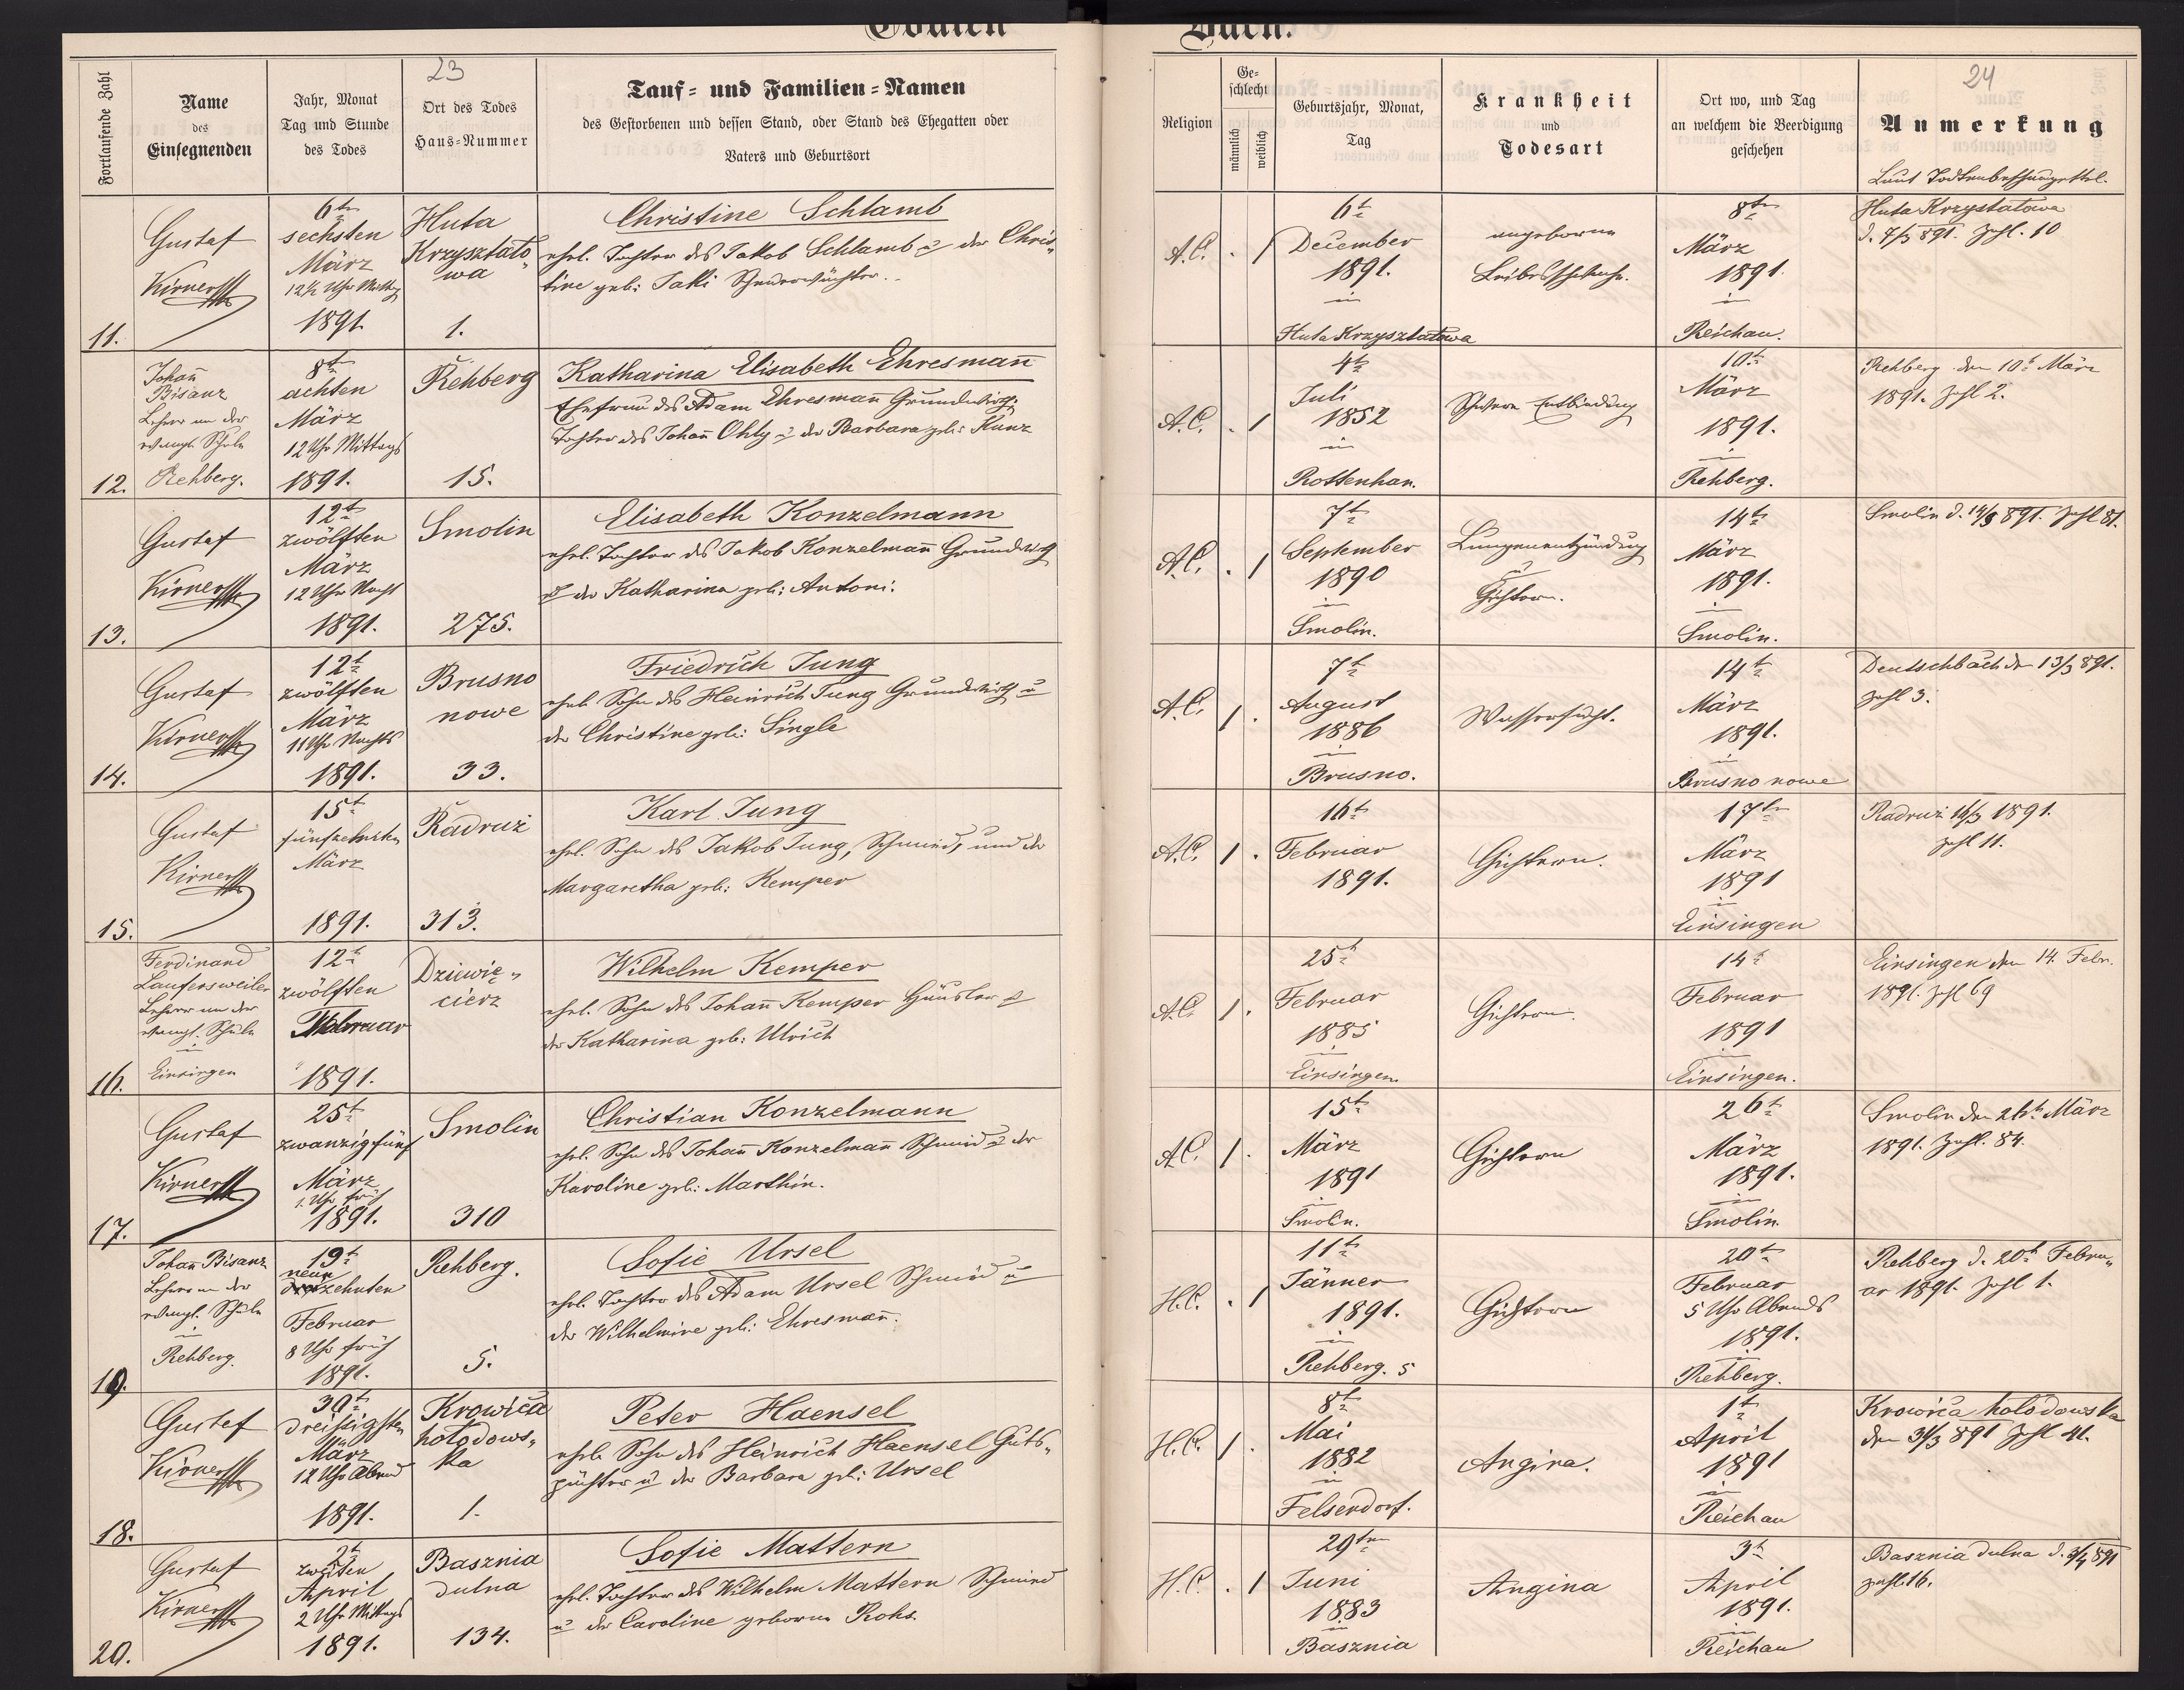 Todten Buch.
23
24
Fortlaufende Zahl
Name
des
Einsegnenden
Jahr, Monat
Tag und Stunde
des Todes
Ort des Todes
Haus-Nummer
Tauf- und Familien-Namen
des Gestorbenen und dessen Stand, oder Stand des Ehegatten oder
Vaters und Geburtsort
Religion
Ge-
schlecht
männlich
weiblich
Geburtsjahr, Monat,
Tag
Krankheit
und
Todesart
Ort wo, und Tag
an welchem die Beerdigung
geschehen
Anmerkung
11.
Gustaf
Kirner
6te
sechsten
März
12½ Uhr Mittag
1891
Huta
Krzyształo-
wa
1.
Christine Schlamb
ehel. Tochter des Jakob Schlamb u. der Chris-
tine geb: Jaki
A.C.
. 1
6t
December
1891.
in
Huta Krzysztalowa
angeborne
8ten
März
1891
in
Reichau.
Huta Krzystalowa
d. 7/3 891. Zahl. 10
12.
Johañ
Bisanz
Lehrer an der
evangl. Schule
Rehberg.
8t
achten
März
12 Uhr Mittags
1891.
Rehberg
15.
Katharina Elisabeth Ehresmañ
Ehefrau des Adam Ehresman Grundwirth;
Tochter des Johañ Ohly u. der Barbara geb: Kunz
A.C.
. 1
4t
Juli
1852
in
Rottenhan.
Schwere Entbindung
10t
März
1891.
in
Rehberg.
Rehberg den 10t März
1891. Zahl 2.
13.
Gustaf
Kirner
12t
zwölften
März
12 Uhr Nacht
1891.
Smolin
275.
Elisabeth Konzelmann
ehel. Tochter des Jakob Konzelmañ Grundwirth
u. der Katharina geb: Antoni.
A.C.
. 1
7t
September
1890
in
Smolin.
Lungenentzündung
u.
Gichtern.
14t
März
1891.
in
Smolin.
Smolin d. 14/3 891. Zahl 81.
14.
Gustaf
Kirner
12t
zwölften
März
11 Uhr Nachts
1891.
Brusno
nowe
33.
Friedrich Jung
ehel. Sohn des Heinrich Jung Grundwirth u
der Christine geb: Single
A.C.
1 .
7t
August
1886
in
Brusno.
Wassersucht.
14t
März
1891.
in
Brusno nowe
Deutschbach den 13/3 891.
Zahl 3.
15.
Gustaf
Kirner
15t
fünfzehnten
März
1891.
Radruż
313.
Karl Jung
ehel. Sohn des Jakob Jung, Schmied, und der
Margaretha geb: Kemper
A.C.
1 .
16t
Februar
1891.
Gichtern.
17ten
März
1891
in
Einsingen
Radruż 16/3 1891.
Zahl 11.
16.
Ferdinand
Laufersweiler
Lehrer an der
evangl. Schule
in
Einsingen
12t
zwölften
Februar
1891.
Dziewię-
cierz
Wilhelm Kemper
ehel. Sohn des Johañ Kemper Häusler u
der Katharina geb: Ulrich
A.C.
1 .
25t
Februar
1885
in
Einsingen
Gichtern.
14t
Februar
1891
in
Einsingen.
Einsingen den 14. Febr.
1891. Zahl 69
17.
Gustaf
Kirner
25t
zwanzigfünf
März
1. Uhr früh
1891.
Smolin
310
Christian Konzelmann
ehel. Sohn des Johañ Konzelmañ Schmied u der
Karoline geb: Marthin.
A.C.
1 .
15t
März
1891
in
Smolin.
Gichtern
26t
März
1891.
in
Smolin
Smolin den 26t März
1891. Zahl. 84.
19.
Johañ Bisanz
Lehrer an der
evangl. Schule
in
Rehberg.
19t
neun
zehnten
Februar
8 Uhr früh
1891.
Rehberg.
5.
Sofie Ursel
ehel. Tochter des Adam Ursel Schmied u
der Wilhelmine geb: Ehresmañ.
H.C.
. 1
11t
Jänner
1891.
in
Rehberg. 5
Gichtern
20t
Februar
5 Uhr Abends
1891.
in
Rehberg.
Rehberg d. 20t Febru-
ar 1891. Zahl 1.
18.
Gustaf
Kirner
30t
dreißigsten
März
12 Uhr Abend
1891.
Krowica
hołodows-
ka
1.
Peter Haensel
ehel. Sohn des Heinrich Haensel Guts-
pächter u der Barbara geb: Ursel
H.C.
1 .
8t
Mai
1882
in
Felsendorf.
Angina.
1t
April
1891
in
Reichau
Krowica hołodowska
den 31/3 891 Zahl 41.
20.
Gustaf
Kirner
2t
zweiten
April
2 Uhr Mittags
1891.
Basznia
dulna
134.
Sofie Mattern
ehel. Tochter des Wilhelm Mattern Schmied
u der Caroline geborne Rohs.
H.C.
. 1
29ten
Juni
1883
in
Basznia
Angina
3t
April
1891.
in
Reichau
Basznia dulna d. 3/4 891
Zahl. 16.